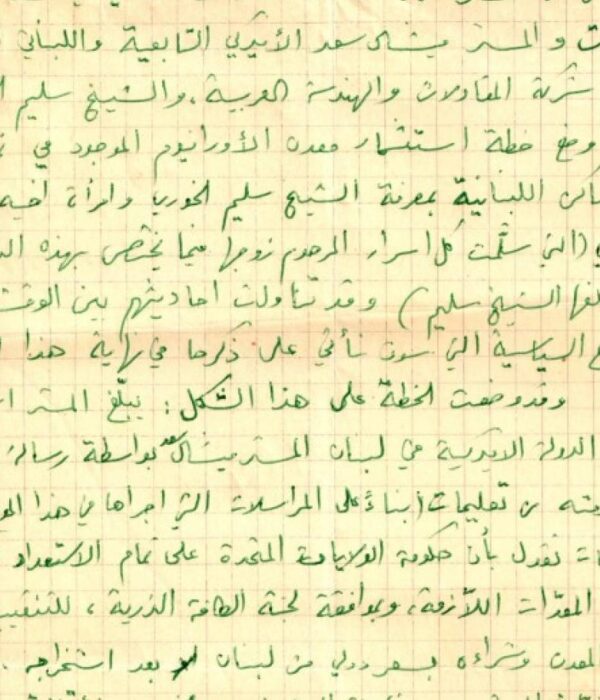 ت و المستر ميشال سعد الأميركي التابعية واللبناني
شركة المقاولات والهندسة العربية، والشيخ سليم ا
وضع خطة استثمار معدن الأورانيوم الموجود في
اكن اللبنانية بمعرفة الشيخ سليم الخوري وامرأة اخيه
ي (التي سلّمت كل اسرار المرحوم زوجها فيما يختص بهذه ال
لفها الشيخ سليم) وقد تناولت احاديثهم بين الوقت
ع السياسية التي سوف نأتي على ذكرها في نهاية هذا ا
وقد وضعت الخطة على هذا الشكل: يبلّغ المستر
الدولة الاميركية في لبنان المستر ميشال سعد بواسطة رسالة
من تعليمات (بناءً على المراسلات التي اجراها في هذا المو
ات تقول بأن حكومة الولايات المتحدة على تمام الاستعداد
المعدّات اللازمة، وبموافقة لجنة الطاقة الذرية، للتنقيب
لمعدن وشراءه بسعر دولي من لبنان بعد استخراجه.